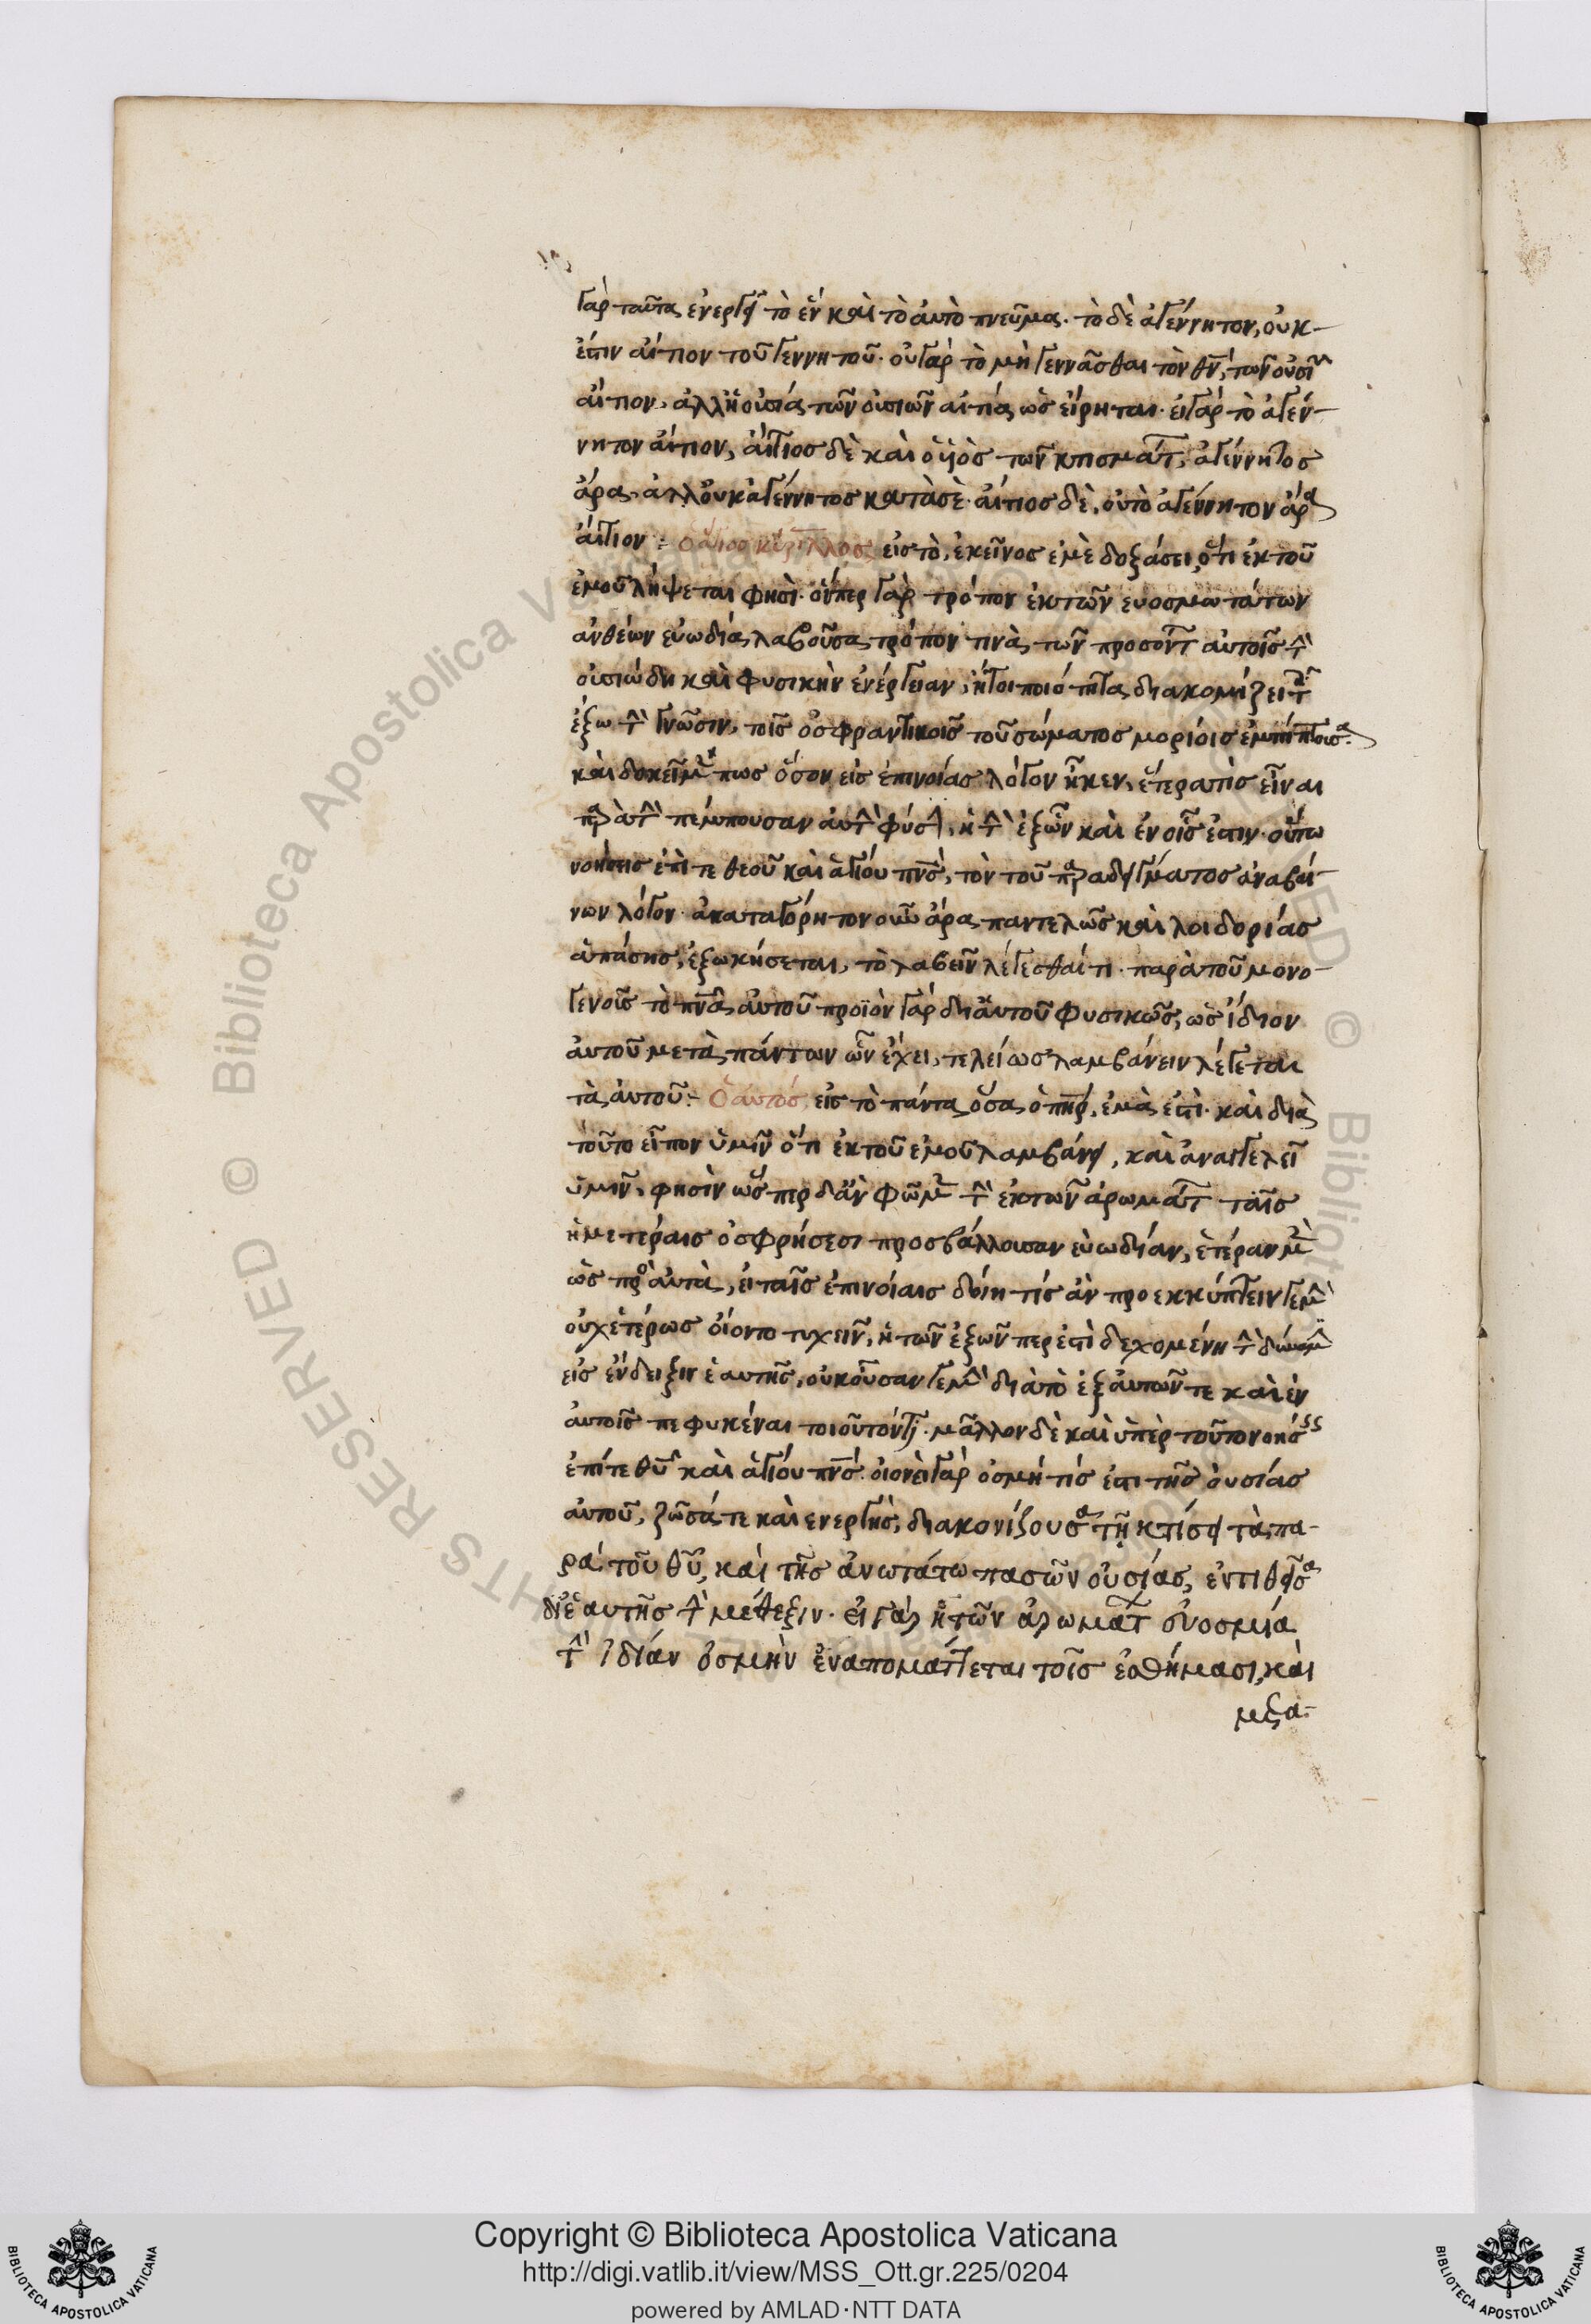 γὰρ ταῦτα ἐνεργεῖ τὸ ἓν καὶ τὸ αὐτὸ πνεῦμα. τὸ δὲ ἀγέννητον, οὐκ
ἔστιν αἴτιον τοῦ γεννητοῦ. οὐ γὰρ τὸ μὴ γεννᾶσθαι τὸν θν, τῶν οὐσιῶν
αἴτιον. ἀλλ' ἡ οὐσία τῶν οὐσιῶν αἰτία ὡς εἴρηται. εἰ γὰρ τὸ ἀγέν-
νητον αἴτιον, αἴτιος δὲ καὶ ὁ υἱὸς τῶν κτισμάτ, ἀγέννητος
ἄρα. ἀλλ' οὐκ ἀγέννητος κατὰ σὲ. αἴτιος δὲ, οὐ τὸ ἀγέννητον ἄρα
αἴτιον : ὁ ἅγιος κύριλλος εἰς τὸ, ἐκεῖνος ἐμὲ δοξάσει, ὅτι ἐκ τοῦ
ἐμοῦ λήψεται φησὶ. ὅνπερ γὰρ τρόπον ἐκ τῶν εὐοσμωτάτων
ἀνθέων εὐωδία λαβοῦσα τρόπον τινὰ τῶν προσόντ αὐτοῖς τ
οὐσιώδη καὶ φυσικὴν ἐνέργειαν, ἤτοι ποιότητα διακομίζει τ
ἔξω τ γνῶσιν, τοῖς ὀσφραντικοῖς τοῦ σώματος μορίοις ἐμπίπτουσα.
καὶ δοκεῖ μ πως ὅσον εἰς ἐπινοίας λόγον ἧκεν, ἑτέρα τὶς εἶναι
παρὰ τ πέμπουσαν αὐτ φύσ, ἢ τ ἐξ ὧν καὶ ἐν οἷς ἐστιν. οὕτω
νοήσεις ἐπί τε θεοῦ καὶ ἁγίου πνς, τὸν τοῦ παραδείγματος ἀναβαί-
νων λόγον. ἀκατηγόρητον οὖν ἄρα παντελῶς καὶ λοιδορίας
ἁπάσης, ἐξωκήσεται, τὸ λαβεῖν λέγεσθαί τι παρὰ τοῦ μονο-
γενοῦς τὸ πνα αὐτοῦ προϊὸν γὰρ δι' αὐτοῦ φυσικῶς, ὡς ἴδιον
αὐτοῦ μετὰ πάντων ὧν ἔχει, τελείως λαμβάνειν λέγεται
τὰ αὐτοῦ :- ὁ αὐτός, εἰς τὸ πάντα ὅσα ὁ πηρ, ἐμὰ ἐστὶ. καὶ διὰ
τοῦτο εἶπον ὑμῖν ὅτι ἐκ τοῦ ἐμοῦ λαμβάνει, καὶ ἀναγγελεῖ
ὑμῖν, φησὶν ὥσπερ δ' ἂν φῶμ τ ἐκ τῶν ἀρωμάτ ταῖς
ἡμετέραις ὀσφρήσεσι προσβάλλουσαν εὐωδίαν, ἑτέραν μ
ὡς πρὸς αὐτὰ, εἰ ταῖς ἐπινοίαις δοίη τίς ἂν προεκκύπτειν γεμ
οὐχ ἑτέρως οἴοντο τυχεῖν, ἢ τῶν ἐξ ὧν πέρ ἐστὶ δεχομένη τ δύναμ
εἰς ἔνδειξιν ἑαυτῆς, οὐκ οὖσαν γεμ διὰ τὸ ἐξ αὐτῶν τε καὶ ἐν
αὐτοῖς πεφυκέναι τοιοῦτόν τι. μᾶλλον δὲ καὶ ὑπὲρ τοῦτο νοήσεις
ἐπί τε θυ καὶ ἁγίου πνς. οἱονεὶ γὰρ ὀσμή τίς ἐστι τῆς οὐσίας
αὐτοῦ, ζῶσά τε καὶ ἐνεργής, διακονίζουσα τῇ κτίσει τὰ πα-
ρὰ τοῦ θυ, καὶ τῆς ἀνωτάτω πασῶν οὐσίας, ἐντιθεῖσα
δι' ἑαυτῆς τ μέθεξιν. εἰ γὰρ ἡ τῶν ἀρωμάτ εὐοσμία
τ ἰδίαν ὀσμὴν ἐναπομάττεται τοῖς ἐσθήμασι, καὶ
μξα-
Copyright © Biblioteca Apostolica Vaticana
http://digi.vatlib.it/view/MSS_Ott.gr.225/0204
powered by AMLAD·NTT DATA
BIBLIOTECA APOSTOLICA VATICANA
BIBLIOTECA APOSTOLICA VATICANA